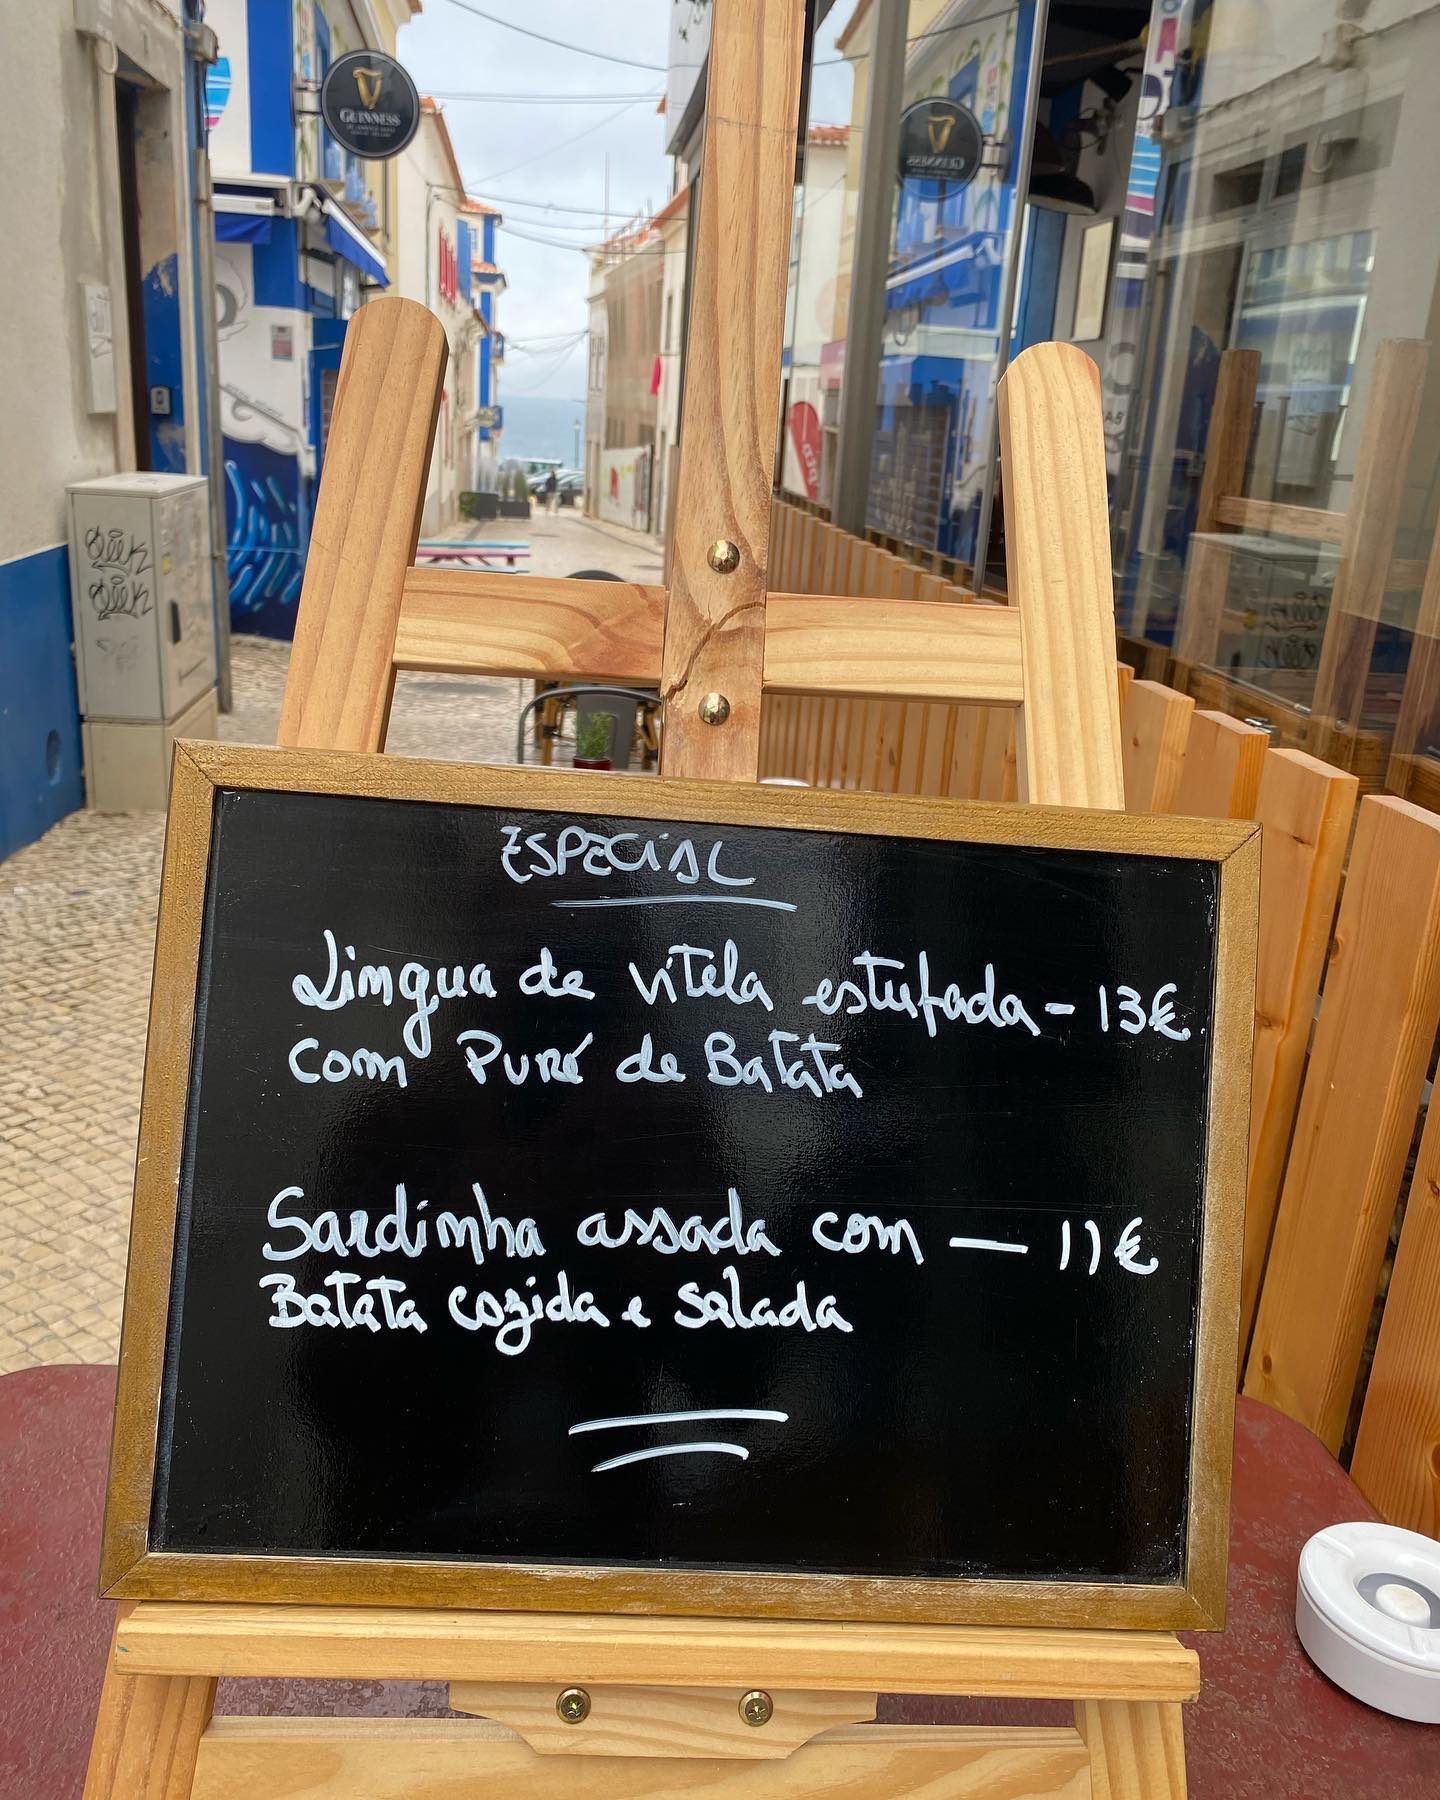 GUINNESS
ESPECiAL
Lingua de vitela estufada - 13€
com Puré de Batata
Sardinha assada com — 11€
Batata cozida e salada